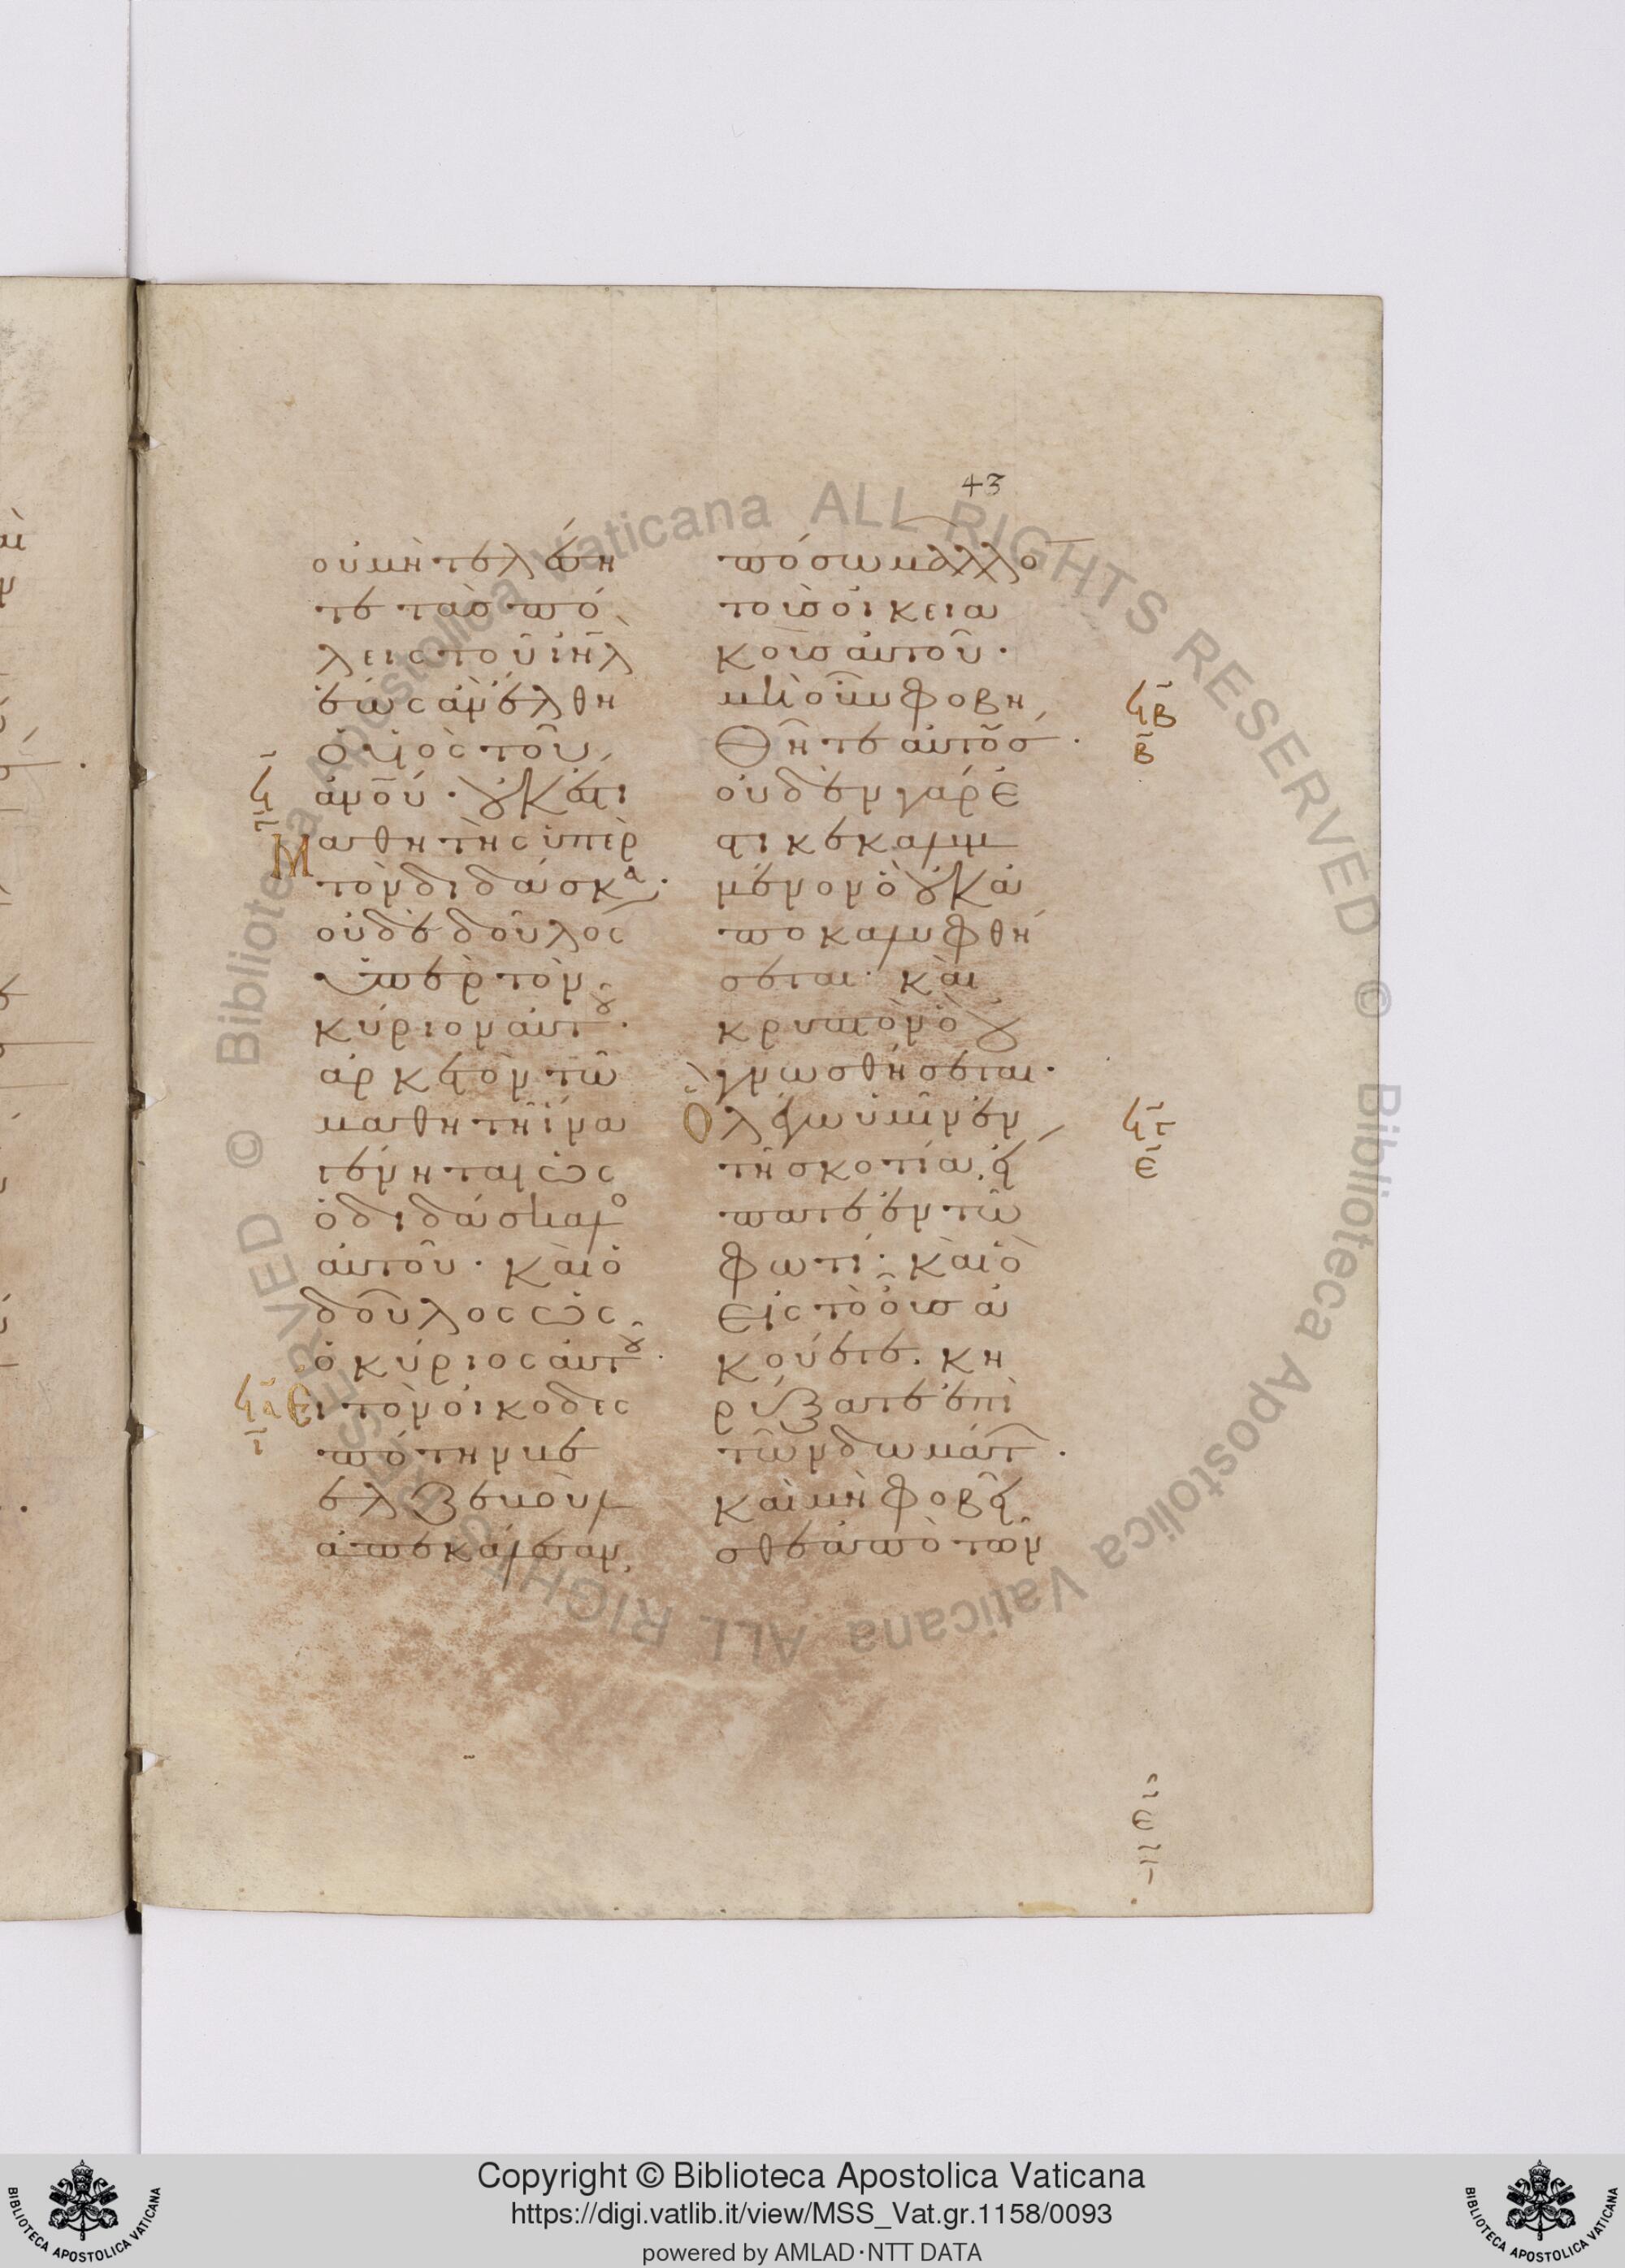 43
οὐ μὴ τελέση
τε τὰς πό
λεις τοῦ ἰηλ
ἕως ἂν ἔλθη
ὁ υἱὸς τοῦ
ἀνου· οὐκ ἔστι
Μαθητὴς ὑπὲρ
τὸν διδάσκα·
οὐδὲ δοῦλος
ὑπὲρ τὸν
κύριον αὐτου·
ἀρκετὸν τῶ
μαθητῆ ἵνα
γένηται ὡς
ὁ διδάσκαλο
αὐτοῦ· καὶ ὁ
δοῦλος ὡς
ὁ κύριος αὐτοῦ·
Ει τὸν οἰκοδεσ
πότην βε
ελζεβοὺλ
ἀπεκάλεσαν,
πόσω μᾶλλο
τοὺς οἰκεια
κοὺς αὐτοῦ·
μὴ οὖν φοβη
θῆτε αὐτοὺσ·
οὐδὲν γάρ ἐ
στι κεκαλυμ
μένον ὃ οὐκ ἀ
ποκαλυφθή
σεται· καὶ
κρυπτὸν ὃ οὐ
γνωσθήσεται·
Ὃ λέγω ὑμῖν ἐν
τῆ σκοτία, εἴ
πατε ἐν τῶ
φωτί· καὶ ὃ
εἰς τὸ οὖς ἀ
κούετε, κη
ρύξατε ἐπὶ
τῶν δωμάτ·
καὶ μὴ φοβεῖ
σθε ἀπὸ τῶν
Copyright © Biblioteca Apostolica Vaticana
https://digi.vatlib.it/view/MSS_Vat.gr.1158/0093
powered by AMLAD·NTT DATA